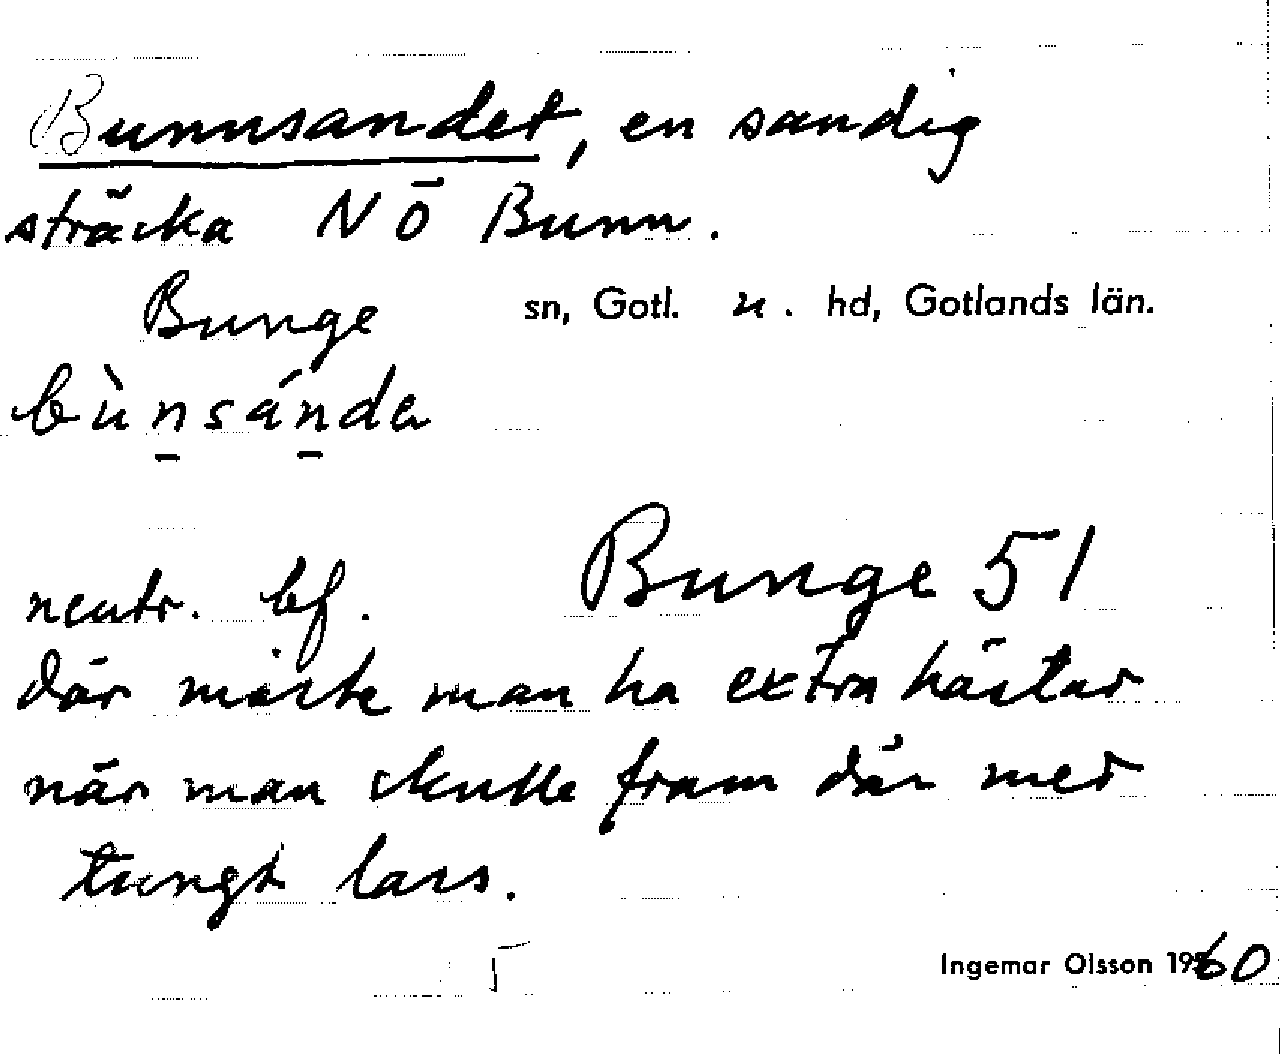 Bunnsandet, en sandig
sträcka NÖ Bunn.
Bunge sn, Gotl. n. hd, Gotlands län.
bùn̠sán̠da
neutr. bf. Bunge 51
där måste man ha extra hästar
när man skulle fram där med
tungt lass.
Ingemar Olsson 1960